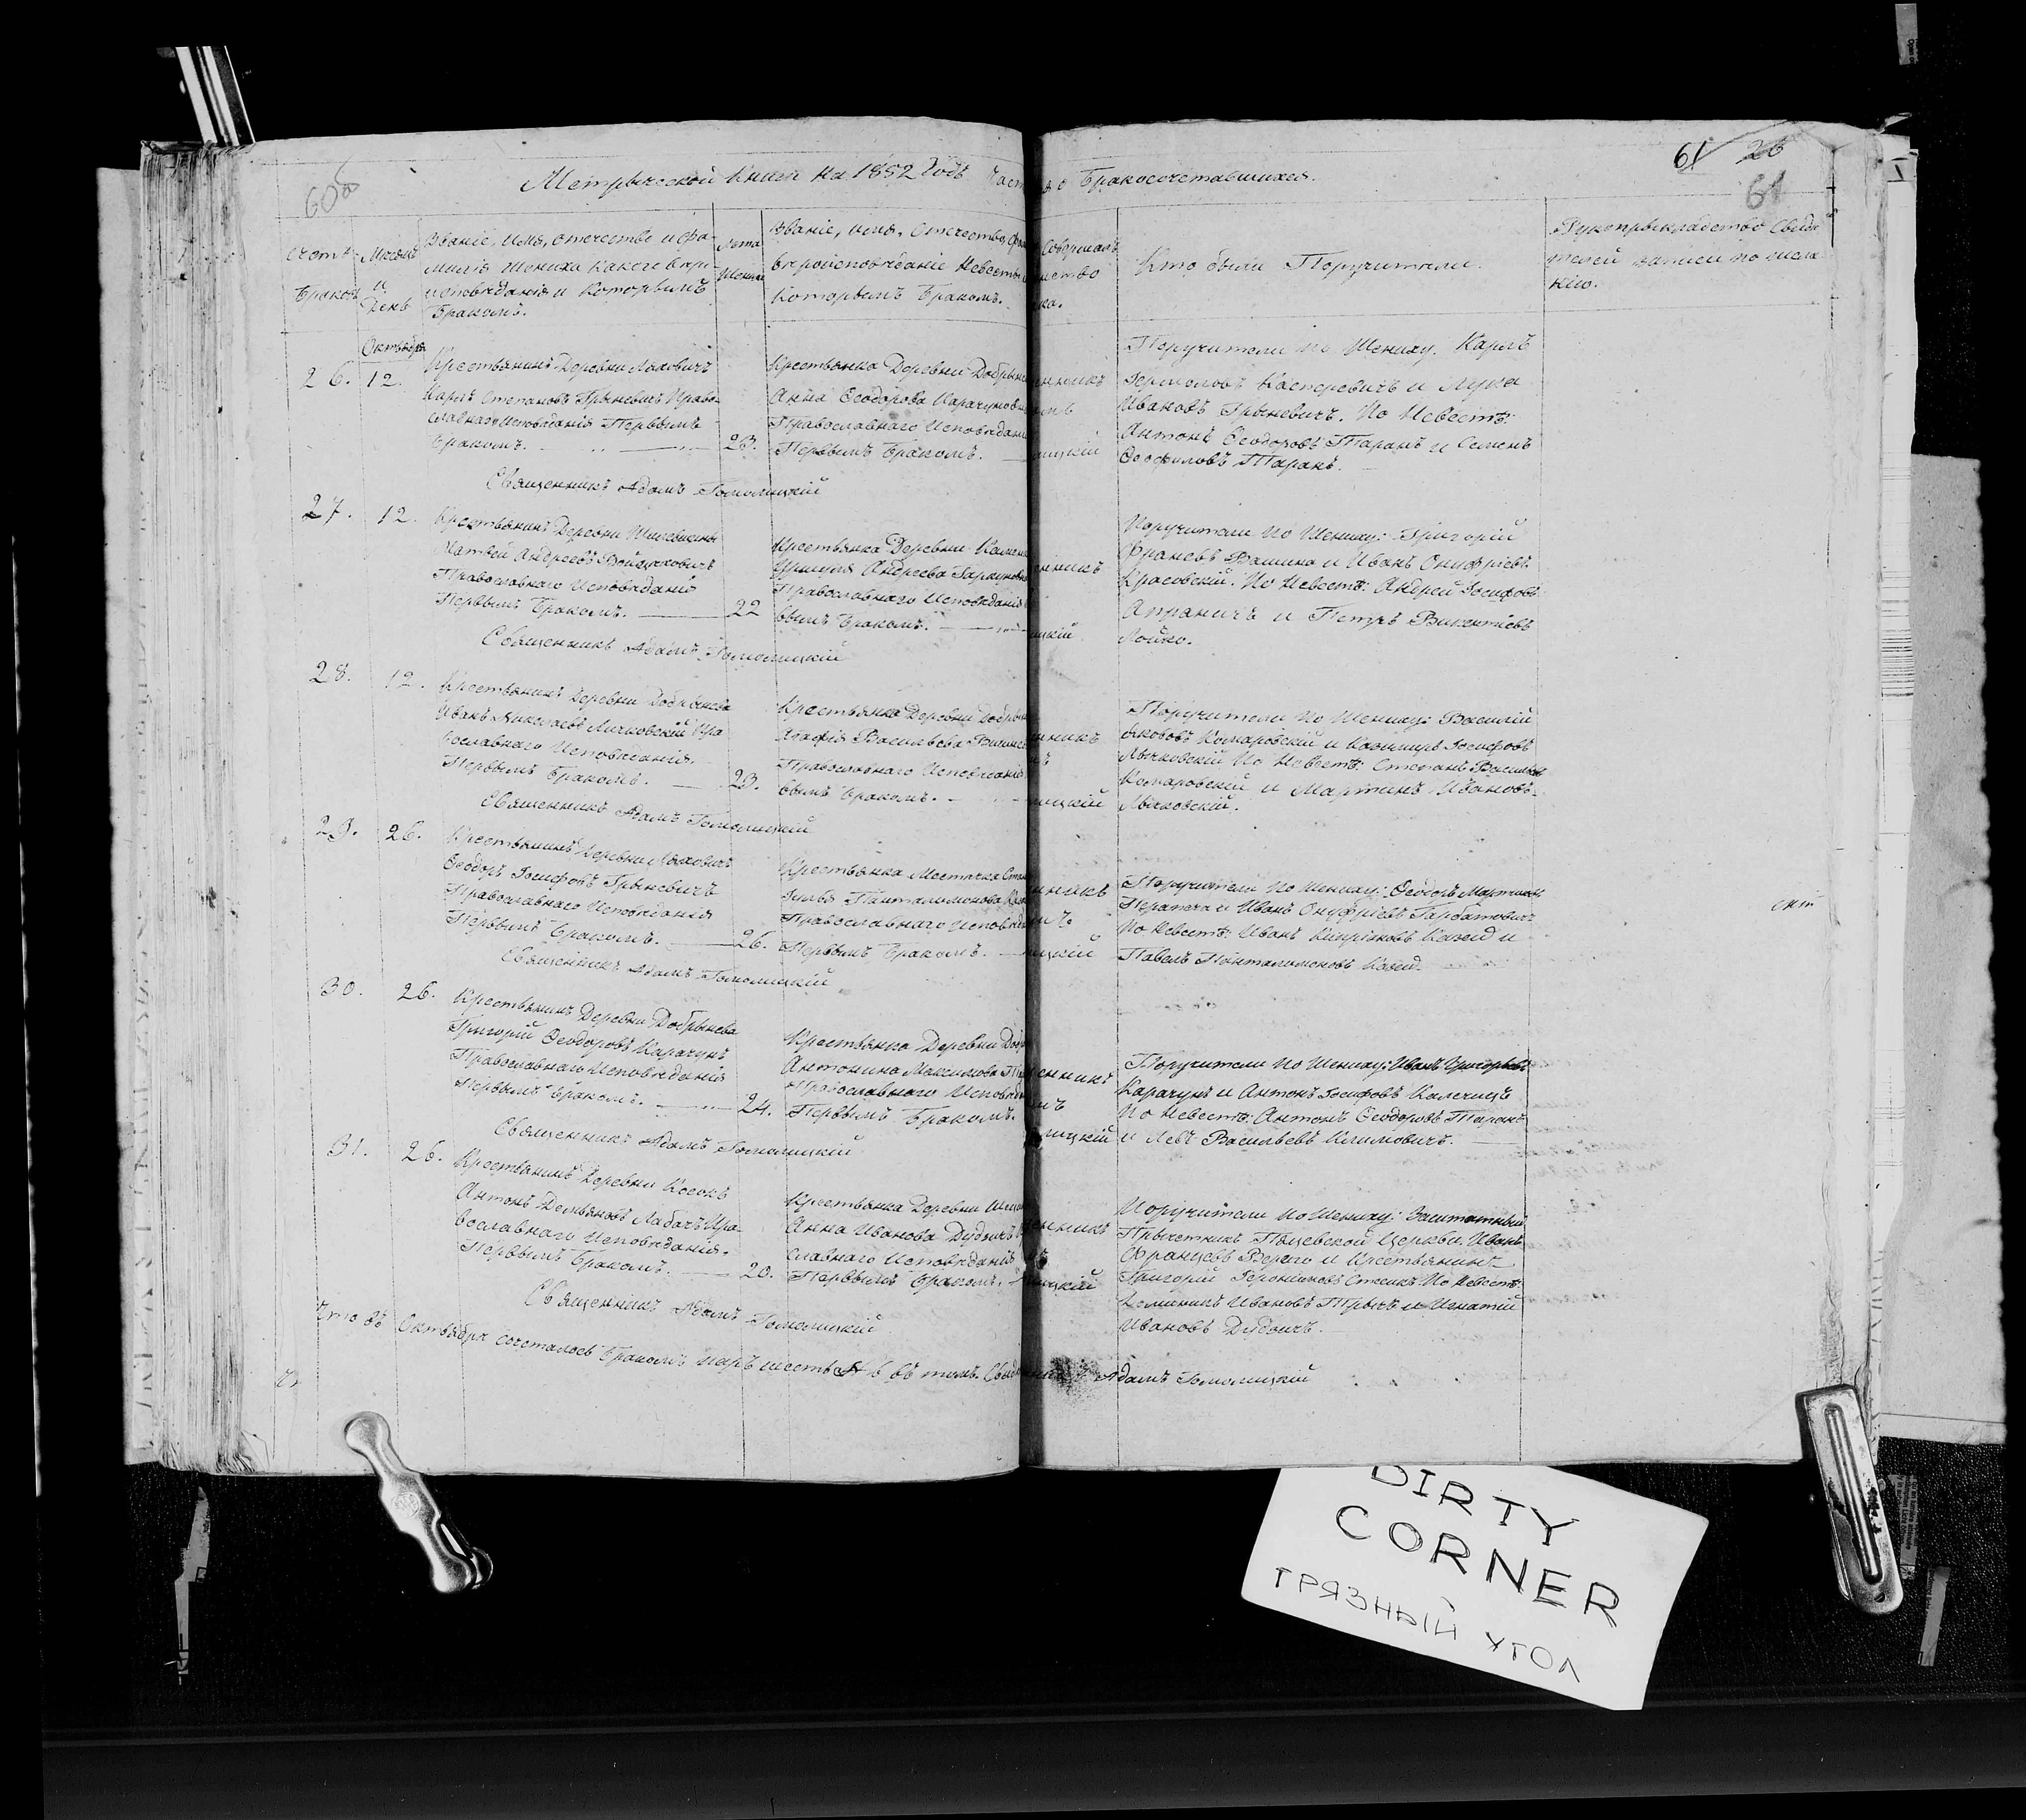 60об
61 26
61
Метрической Книги на 1852 Годъ Част о Бракосочетавшихся.
Счотъ Браковъ
Месяцъ и День
Званіе, имя, отечество и фа-
милія Жениха какого веро-
исповеданія и Которымъ
Бракомъ.
Лета Жениха
Званіе, имя, Отечество, фа
вероисповеданіе Невесты
Которымъ Бракомъ.
Совершалъ
нство
ка.
Кто были Поручители.
Рукоприкладство Свиде
телей записи по жела
нію.
Октября
26. 12. Крестьянинъ Деревни Ляховичъ
Карлъ Степановъ Грыневичъ Право-
славнаго Исповеданія Первымъ
Бракомъ. 23.
Крестьянка Деревни Добрын
Анна Ѳеодорова Карачунов
Православнаго Исповедан
Первымъ Бракомъ.
енникъ
мъ
ицкій
Поручители по Жениху. Карлъ
Касперевичъ и Лука
Ивановъ Грыневичъ. По Невесте:
Антонъ Ѳеодоровъ Таранъ и Семенъ
Ѳеофиловъ Таранъ.
Священникъ Адамъ Гомолицкій
27. 12. Крестьянинъ Деревни
Матвей Андреевъ Войцеховичъ
Православнаго Исповеданія
Первымъ Бракомъ. 22
Крестьянка Деревни Камен
Уршуля Андреева
Православнаго Исповеданія
вымъ Бракомъ.
енникъ
ицкій
Поручители по Жениху: Григорій
Вашина и Иванъ Онуфріевъ
Красовскій. По Невесте: Андрей Іосифовъ
Апраничъ и Петръ Викентіевъ
Лойко.
Священникъ Адамъ Гомолицкій
28. 12. Крестьянинъ Деревни Добрынева
Иванъ Николаевъ Лычковскій Пра
вославнаго Исповеданія.
Первымъ Бракомъ. 23.
Крестьянка Деревни Добрын
Агафія Васильева
Православнаго Исповеданія
вымъ Бракомъ.
енникъ
ъ
ицкій
Поручители по Жениху: Василій
Якововъ Комаровскій и Казимиръ Іосифовъ
Лычковскій По Невесте: Степанъ Васильевъ
Комаровскій и Мартинъ Ивановъ
Лычковскій.
Священникъ Адамъ Гомолицкій
29. 26. Крестьянинъ Деревни Ляховичъ
Ѳеодоръ Іосифовъ Грыневичъ
Православнаго Исповеданія
Первымъ Бракомъ. 26.
Крестьянка Местечка
Пантелимонова
Православнаго Исповедан
Первымъ Бракомъ.
енникъ
мъ
ицкій
Поручители по Жениху: Ѳеодоръ Мартиновъ
и Иванъ Онуфріевъ Гарбатовичъ
По Невесте: Иванъ Кипріяновъ Казеид и
Павелъ Панталимоновъ Казеид.
Священникъ Адамъ Гомолицкій
30. 26. Крестьянинъ Деревни Добрынева
Григорій Ѳеодоровъ Карачунъ
Православнаго Исповеданія
Первымъ Бракомъ. 24.
Крестьянка Деревни Добр
Антонина Максимова
Православнаго Исповедан
Первымъ Бракомъ.
енникъ
мъ
лицкій
Поручители по Жениху: Иванъ Григорьевъ
Карачунъ и Антонъ Іосифовъ Калечицъ
По Невесте: Антонъ Ѳеодоровъ Таранъ
и Левъ Васильевъ Климовичъ.
Священникъ Адамъ Гомолицкій
31. 26. Крестьянинъ Деревни Косокъ
Антонъ Демьяновъ Лабачъ Пра-
вославнаго Исповеданія.
Первымъ Бракомъ. 20.
Крестьянка Деревни
Анна Иванова Дудоичъ
славнаго Исповеданія
Первымъ Бракомъ.
енникъ
мъ
ицкій
Поручители по Жениху: Заштатный
Прычетникъ Церкви Иванъ
Францевъ и Крестьянинъ
Григорій По Невесте:
Доминикъ Ивановъ и Игнатій
Ивановъ Дудоичъ.
Священникъ Адамъ Гомолицкій
Что въ Октябре сочеталось Бракомъ паръ шесть 6 въ томъ Свид Адамъ Гомолицкій
DIRTY
CORNER
ГРЯЗНЫЙ УГОЛ